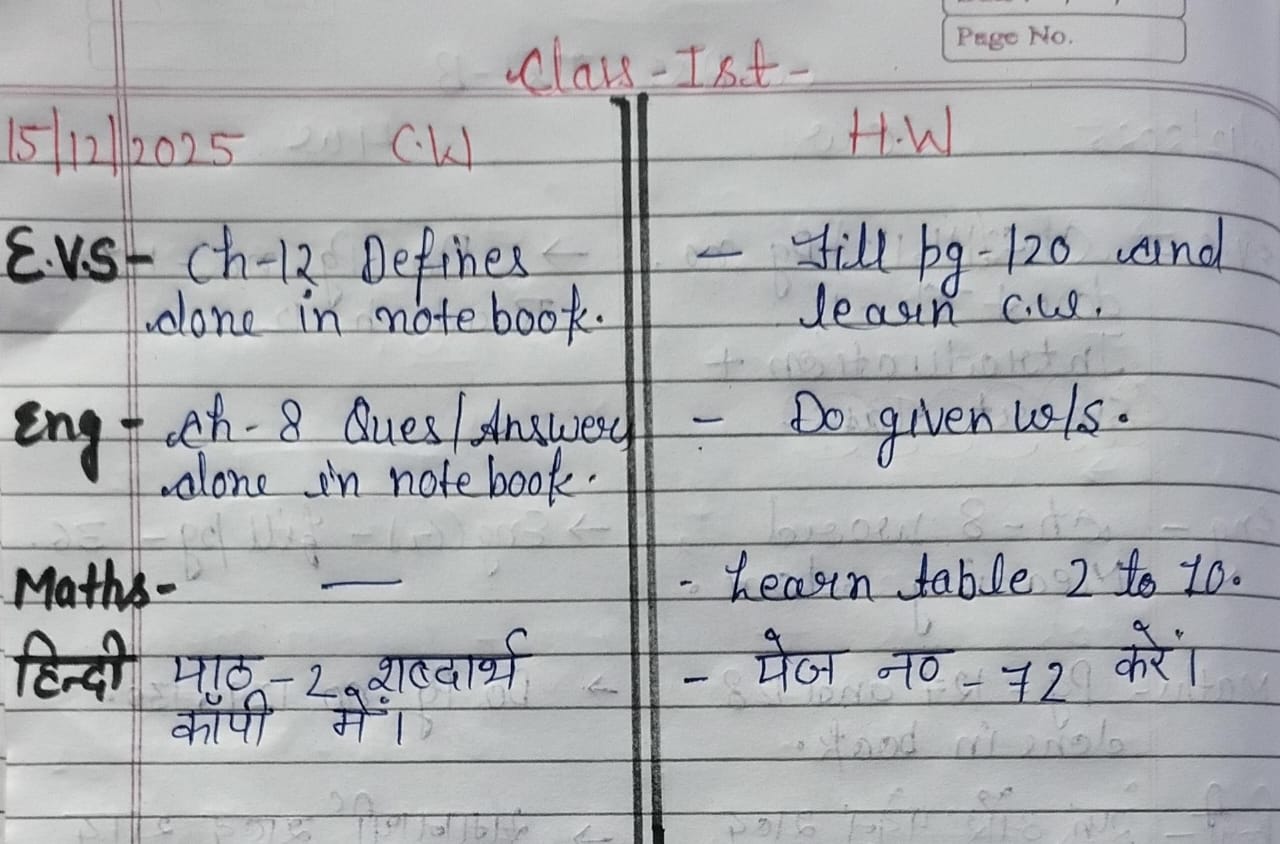 Page No.
Class - Ist -
15/12/2025 C.W H.W
E.V.S - Ch-12 Defines - Fill pg-120 and
done in notebook. learn c.w.
Eng - Ch-8 Ques/Answer - Do given w/s.
done in notebook.
Maths - — - Learn table 2 to 10.
हिन्दी पाठ-2 शब्दार्थ - पेज न० - 72 करें।
कॉपी में।